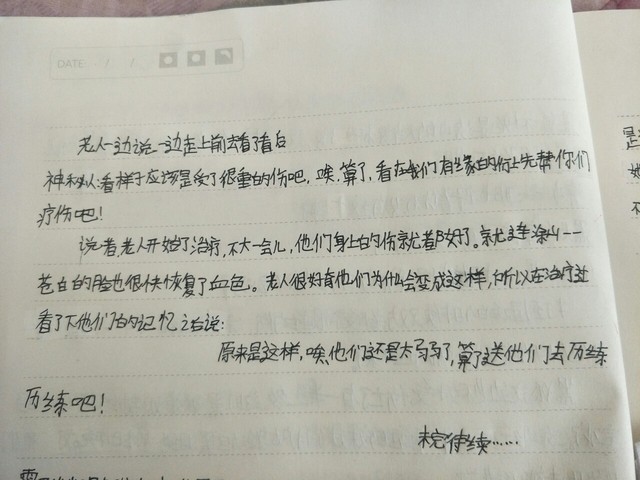 DATE / /
老人一边说一边走上前去看了看白
神和从:看样子应该是受了很重的伤吧,唉,算了,看在我们有缘的份上先帮你们
疗伤吧!
说着老人开始了治疗,不大一会儿,他们身上的伤就都好了。就连涂山一一
苍白的脸也很快恢复了血色。老人很好奇他们为什么会变成这样,所以在治疗过
看了下他们的记忆之后说:
原来是这样,唉,他们还是太弱了,算了送他们去历练
历练吧!
未完待续……